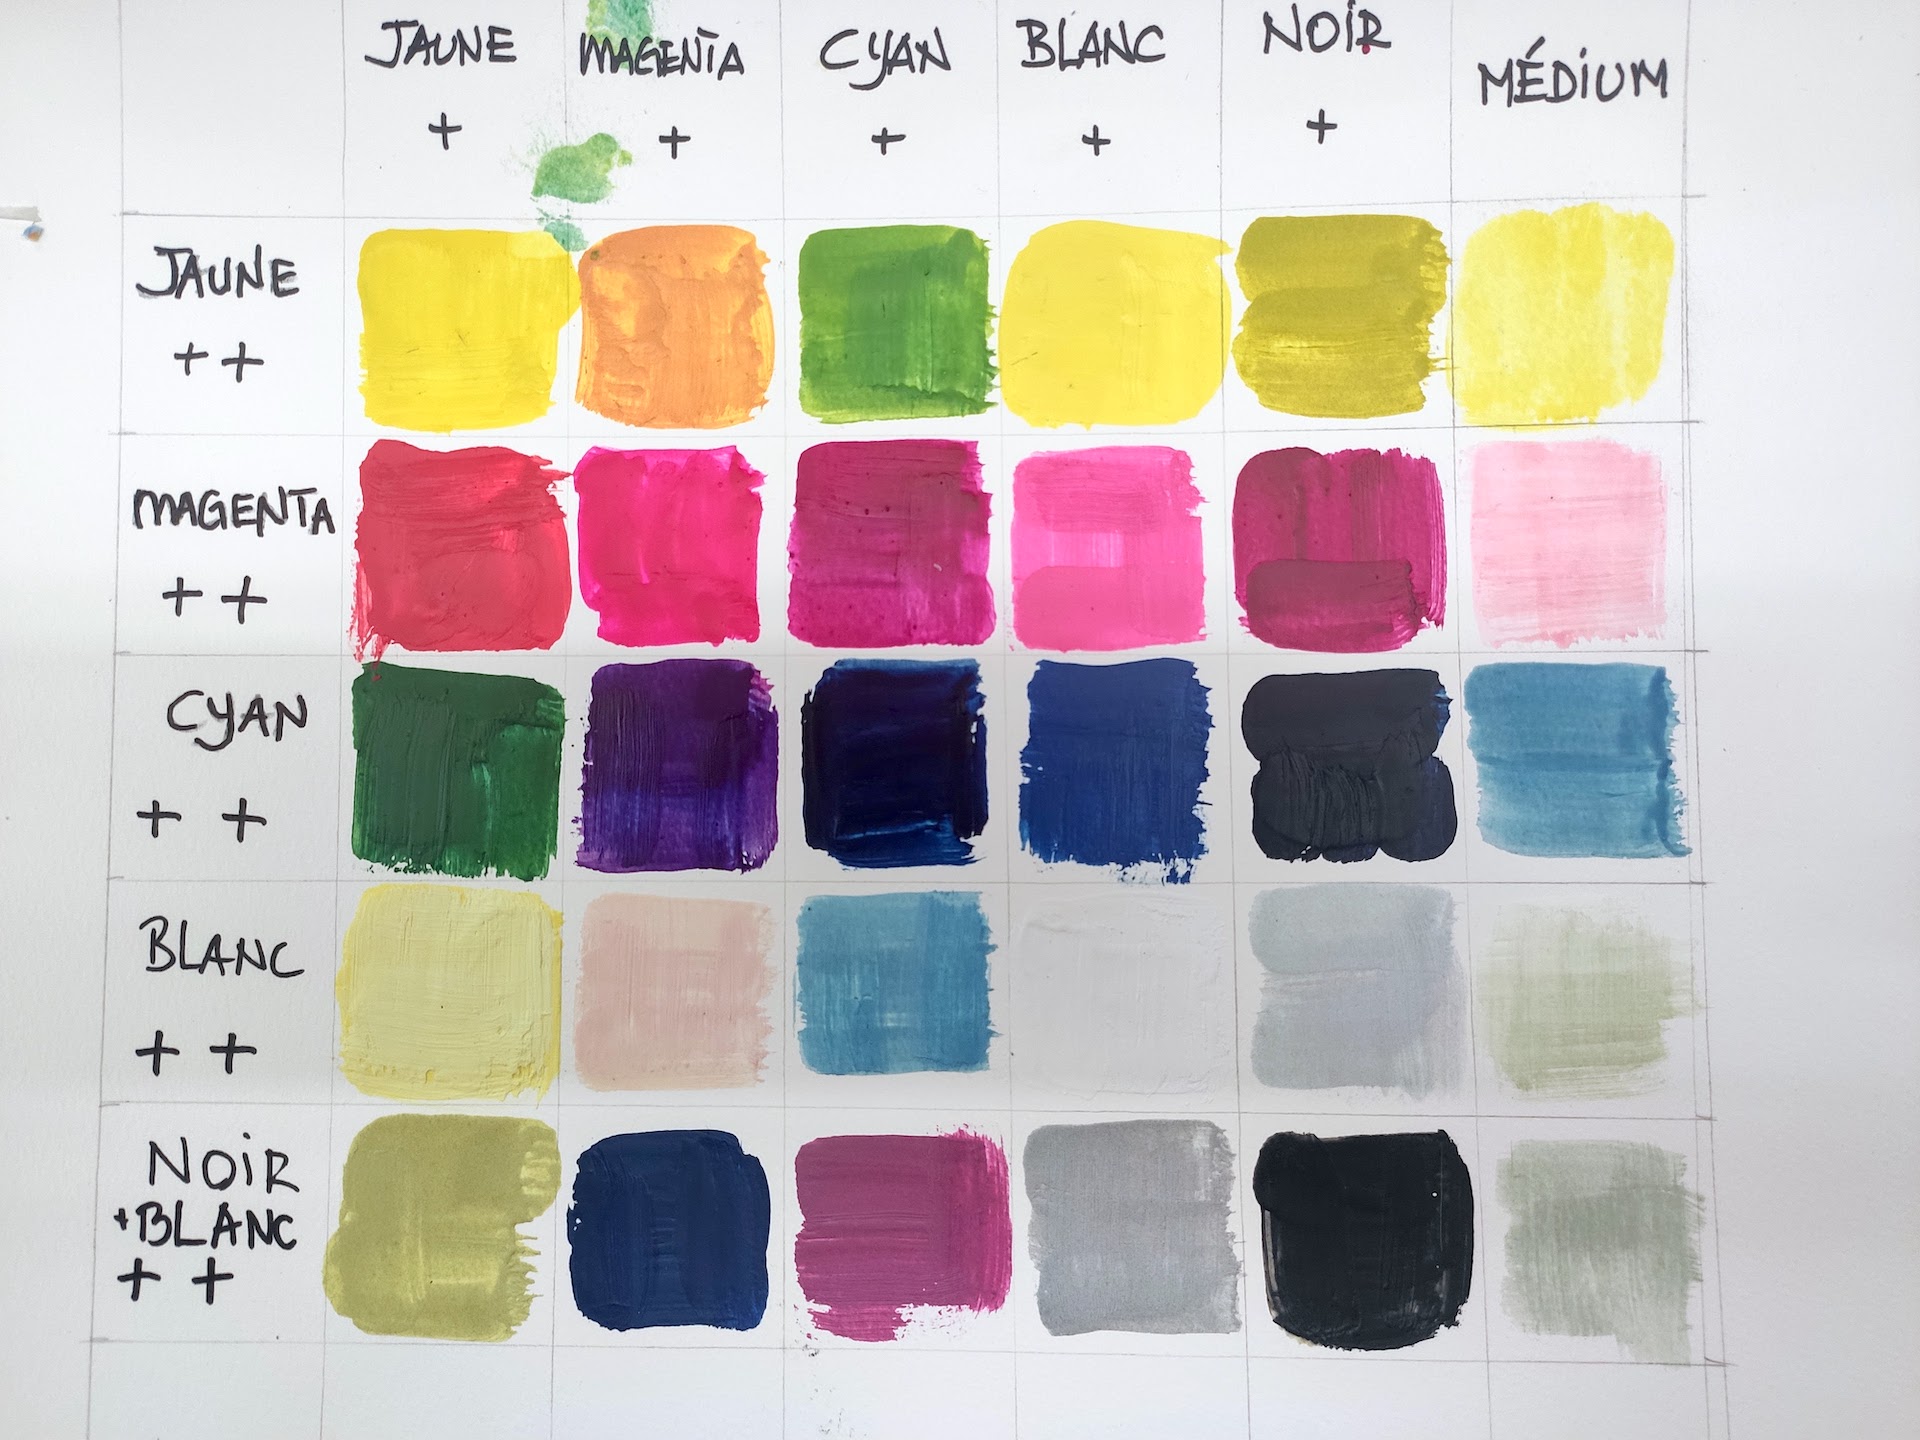 JAUNE MAGENTA CYAN BLANC NOIR MÉDIUM
+ + + + +
JAUNE
+ +
MAGENTA
+ +
CYAN
+ +
BLANC
+ +
NOIR
+BLANC
+ +